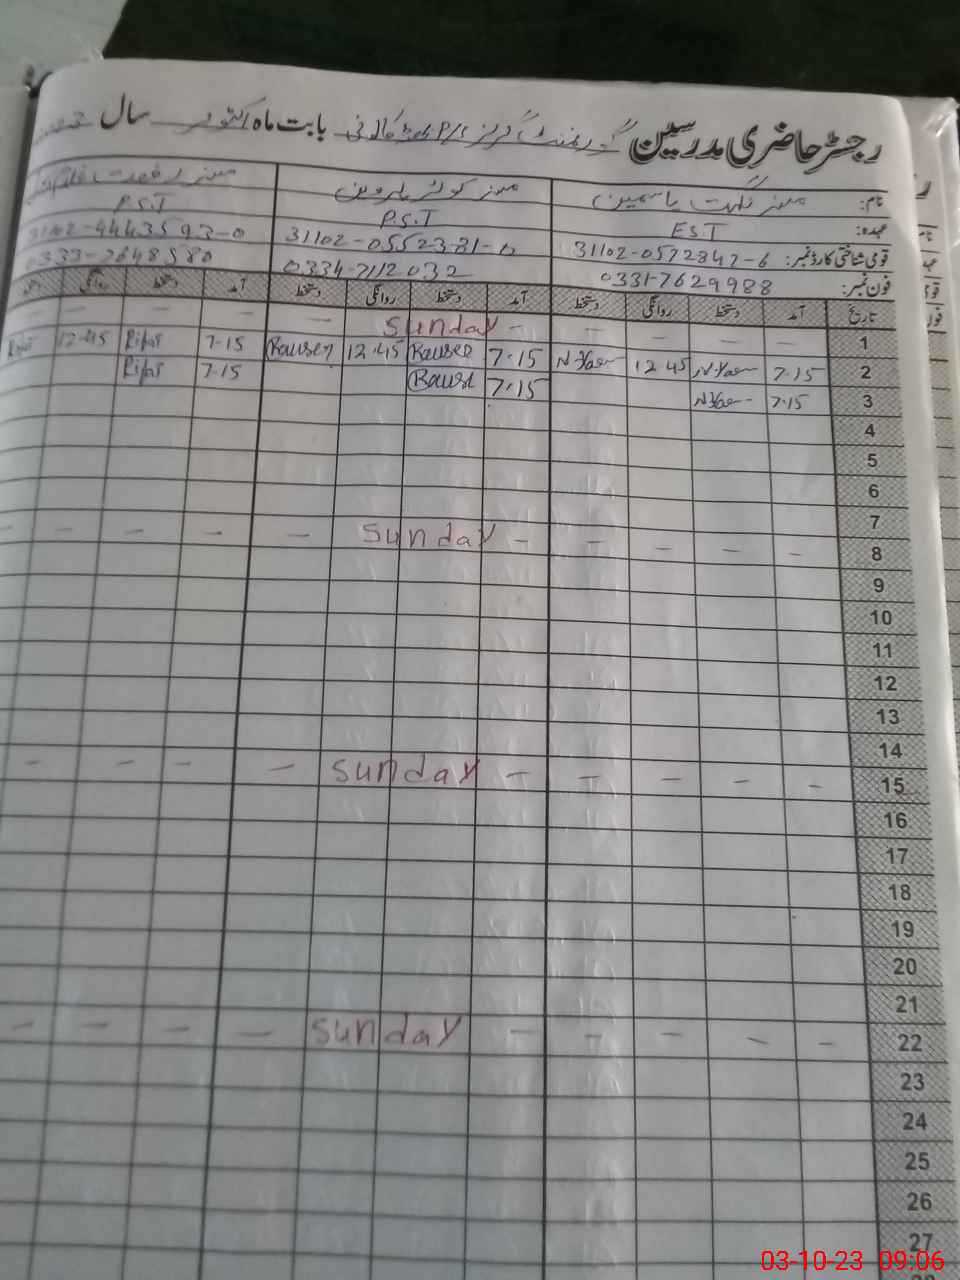 رجسٹر حاضری مدرسین گورنمنٹ گرلز P/S بابت ماہ اکتوبر سال
نام: مسز نگہت یاسمین مسز کوثر پروین مسز رفعت
عہدہ: EST P.S.T P.S.T
قومی شناختی کارڈ نمبر: 31102-0572847-6 31102-0552381-0 31102-4443593-0
فون نمبر: 0331-7629988 0334-7112032 0333-7648580
تاریخ آمد دستخط روانگی دستخط آمد دستخط روانگی دستخط آمد دستخط روانگی
1 – – – – – sunday – – –
2 7-15 12 45 7-15 Rausen 12.45 Rausen 7-15 Rifat 12-45 Rifat
3 7-15 7-15 Rausen 7-15 Rifat
4
5
6
7
8 – – – – – sunday – – – –
9
10
11
12
13
14
15 – – – – – sunday – – – –
16
17
18
19
20
21
22 – – – – – sunday – – – –
23
24
25
26
27
03-10-23 09:06